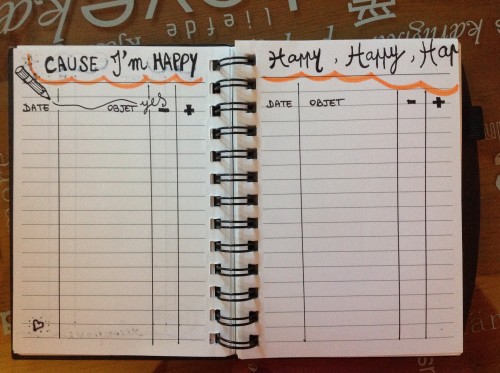 CAUSE I'm HAPPY
yes
DATE OBJET - +
HAPPY, HAPPY, HAP
DATE OBJET - +
liefde